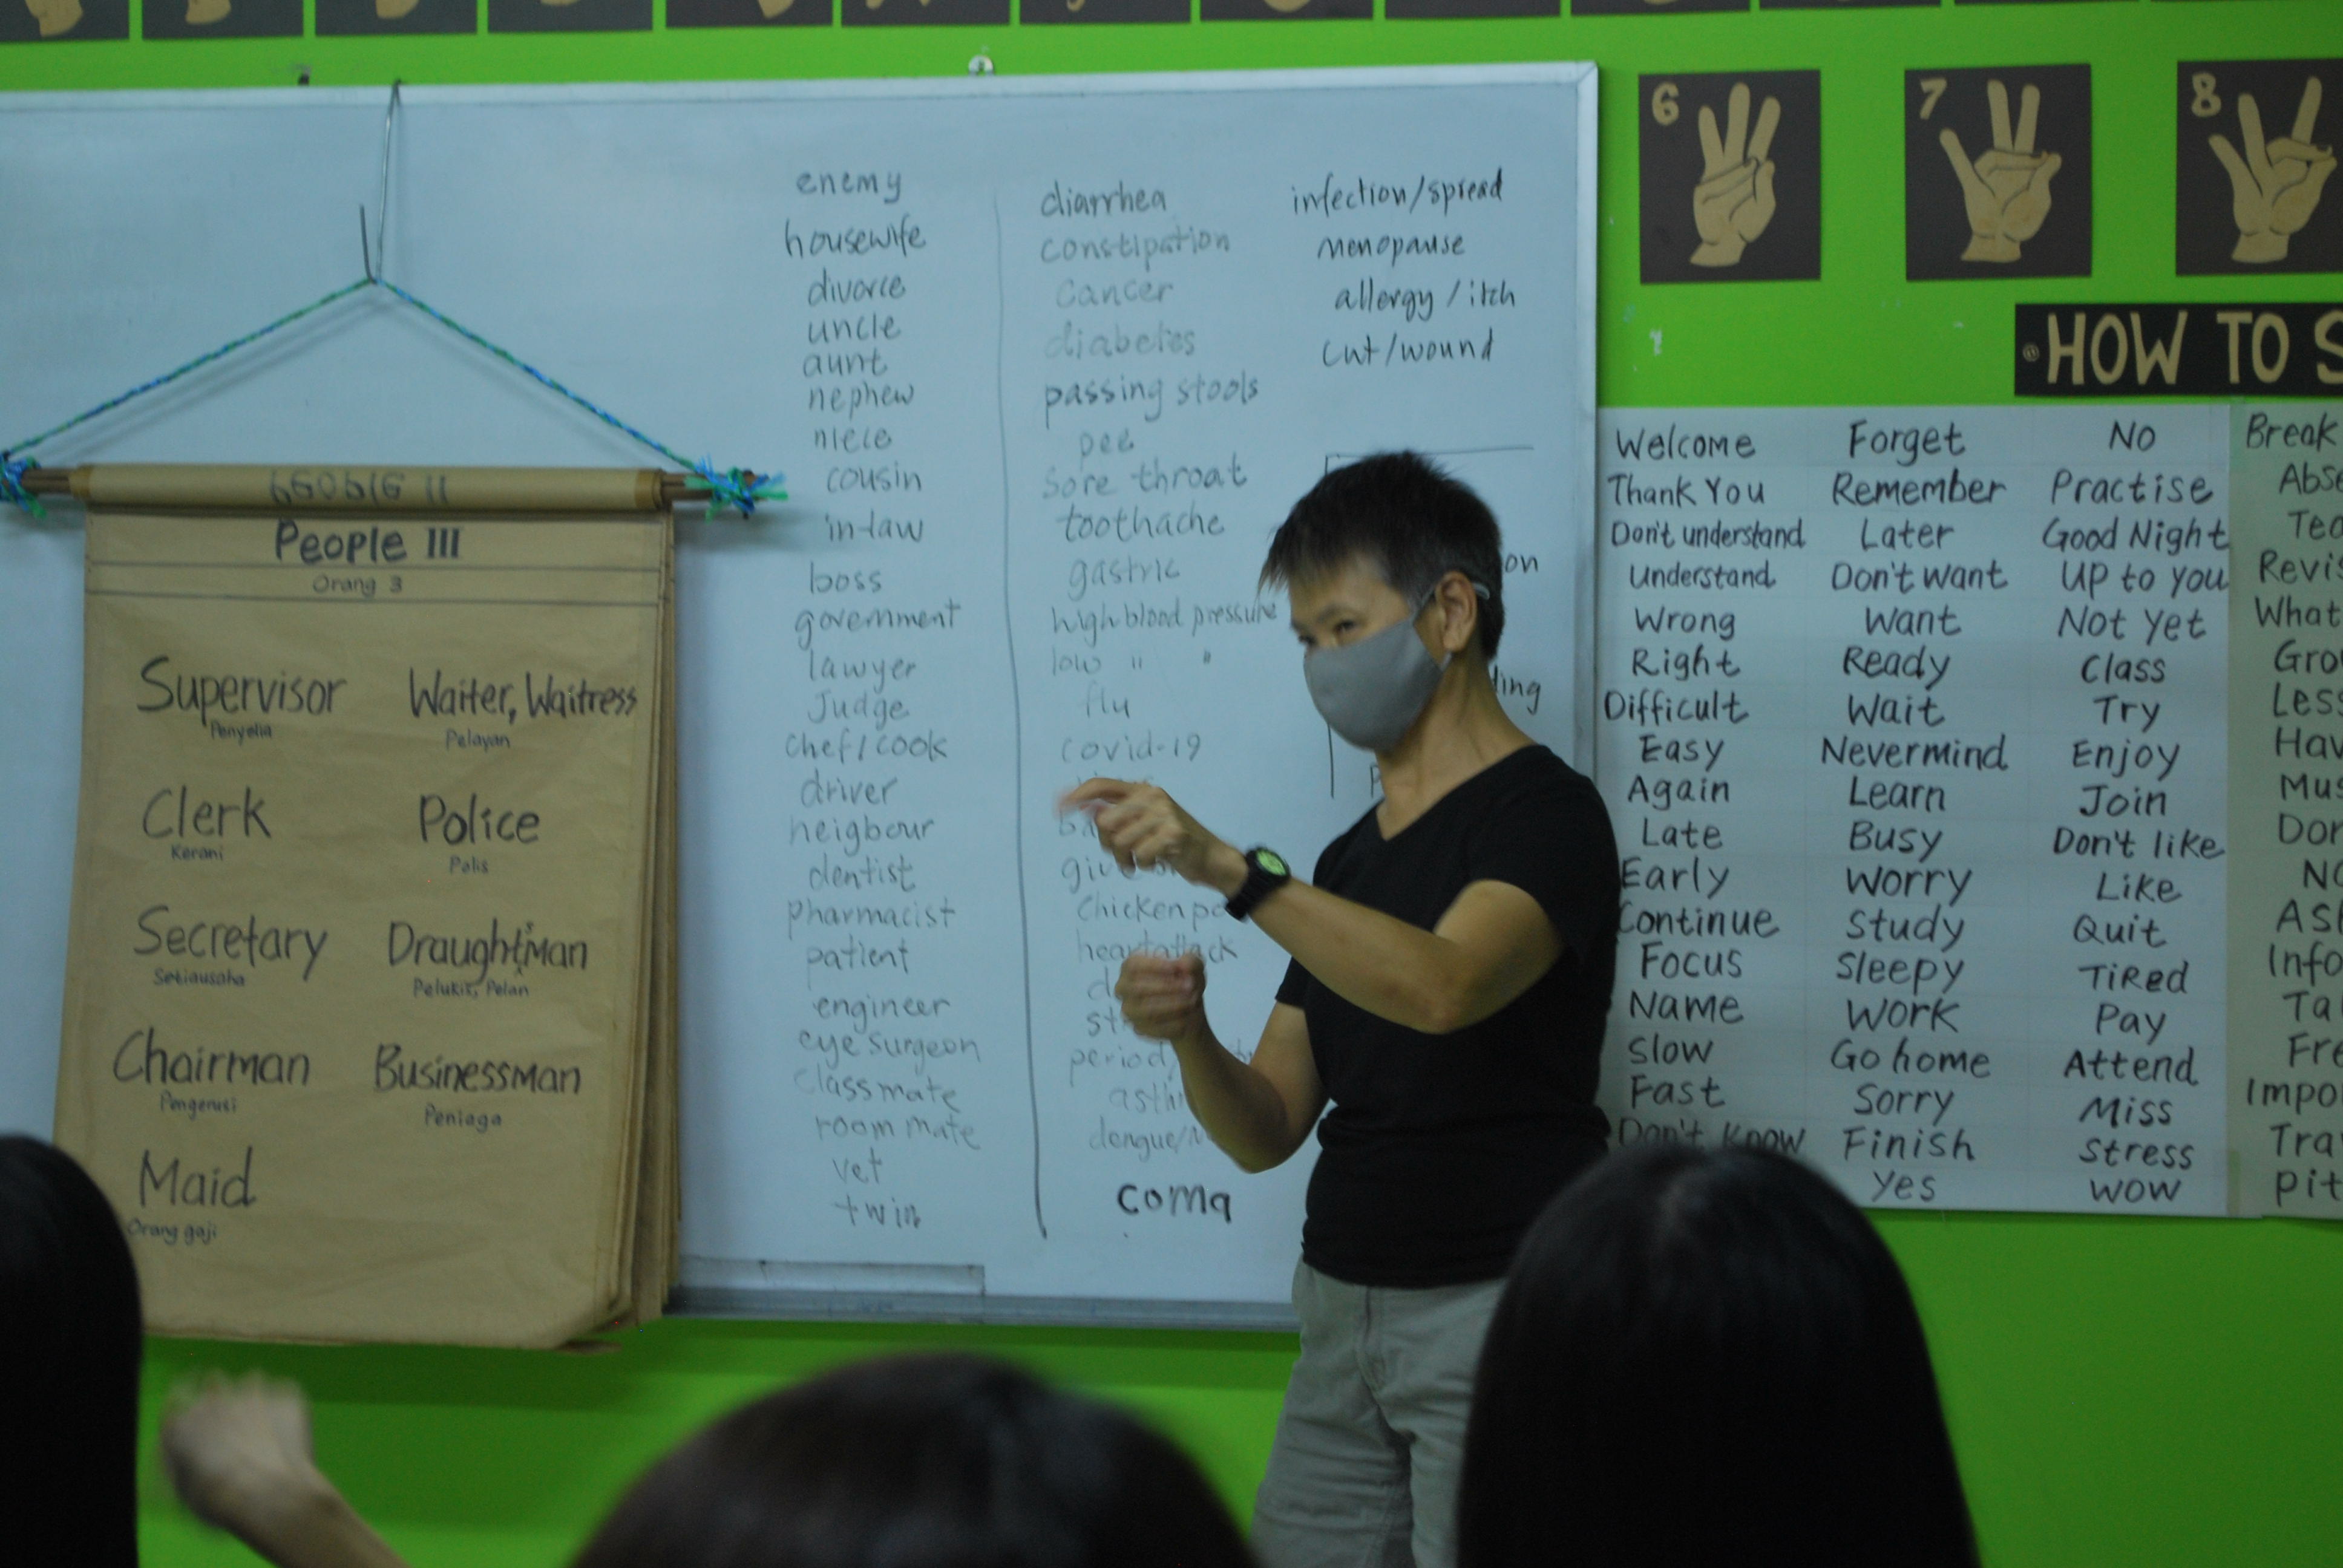 PEOPLE II
People III
Orang 3
Supervisor
Penyelia
Waiter, Waitress
Pelayan
Clerk
Kerani
Police
Polis
Secretary
Setiausaha
Draughtman
Pelukis, Pelan
Chairman
Pengerusi
Businessman
Peniaga
Maid
Orang gaji
enemy
housewife
divorce
uncle
aunt
nephew
niece
cousin
in-law
boss
government
lawyer
Judge
chef/cook
driver
neigbour
dentist
pharmacist
patient
engineer
eye surgeon
classmate
room mate
vet
twin
diarrhea
constipation
cancer
diabetes
passing stools
pee
sore throat
toothache
gastric
high blood pressure
low " "
flu
covid-19
chicken
heart attack
period
dengue/
coma
infection/spread
menopause
allergy / itch
cut/wound
6
7
8
HOW TO S
Welcome
Thank You
Don't understand
Understand
Wrong
Right
Difficult
Easy
Again
Late
Early
Continue
Focus
Name
Slow
Fast
Don't Know
Forget
Remember
Later
Don't want
Want
Ready
Wait
Nevermind
Learn
Busy
Worry
Study
Sleepy
Work
Go home
Sorry
Finish
Yes
No
Practise
Good Night
Up to you
Not yet
Class
Try
Enjoy
Join
Don't like
Like
Quit
TiRed
Pay
Attend
Miss
Stress
WOW
Break
Abse
Tea
Revis
What
Gro
Less
Hav
Mus
Don
No
As
Info
Ta
Fre
Impo
Tra
Pit